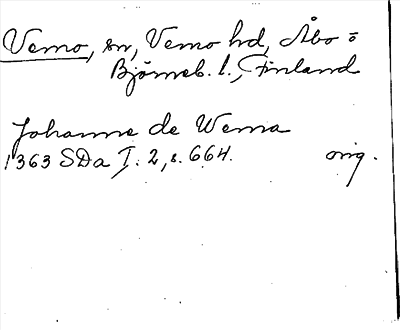 Vemo, sn, Vemo hd, Åbo o
Björneb. l., Finland
Johanne de Wema
1363 SDa I. 2, s. 664. orig.